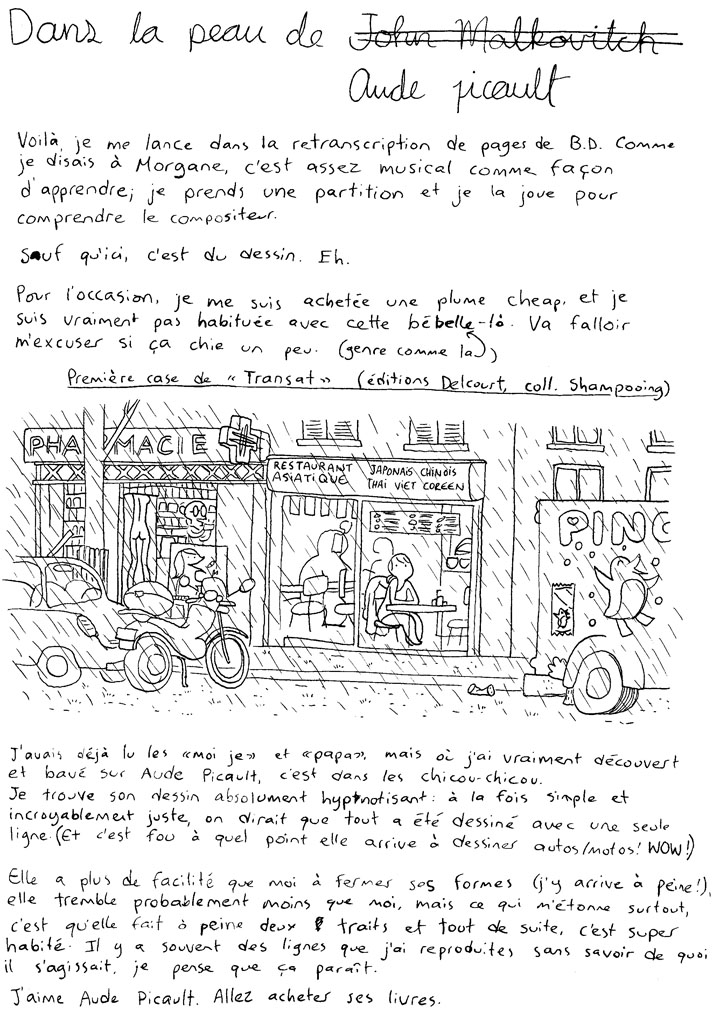 Dans la peau de John Malkovitch
Aude picault
Voilà, je me lance dans la retranscription de pages de B.D. Comme
je disais à Morgane, c'est assez musical comme façon
d'apprendre; je prends une partition et je la joue pour
comprendre le compositeur.
Sauf qu'ici, c'est du dessin. Eh.
Pour l'occasion, je me suis achetée une plume cheap, et je
suis vraiment pas habituée avec cette bébelle-là. Va falloir
m'excuser si ça chie un peu. (genre comme là)
Première case de "Transat" (éditions Delcourt, coll. Shampooing)
PHARMACIE
RESTAURANT
ASIATIQUE
JAPONAIS CHINOIS
THAI VIET COREEN
PING
J'avais déjà lu les «moi je» et «papa», mais où j'ai vraiment découvert
et bavé sur Aude Picault, c'est dans les chicou-chicou.
Je trouve son dessin absolument hyptnotisant: à la fois simple et
incroyablement juste, on dirait que tout a été dessiné avec une seule
ligne. (Et c'est fou à quel point elle arrive à dessiner autos/motos! WOW!)
Elle a plus de facilité que moi à fermer ses formes (j'y arrive à peine!),
elle tremble probablement moins que moi, mais ce qui m'étonne surtout,
c'est qu'elle fait à peine deux traits et tout de suite, c'est super
habité. Il y a souvent des lignes que j'ai reproduites sans savoir de quoi
il s'agissait, je pense que ça paraît.
J'aime Aude Picault. Allez acheter ses livres.